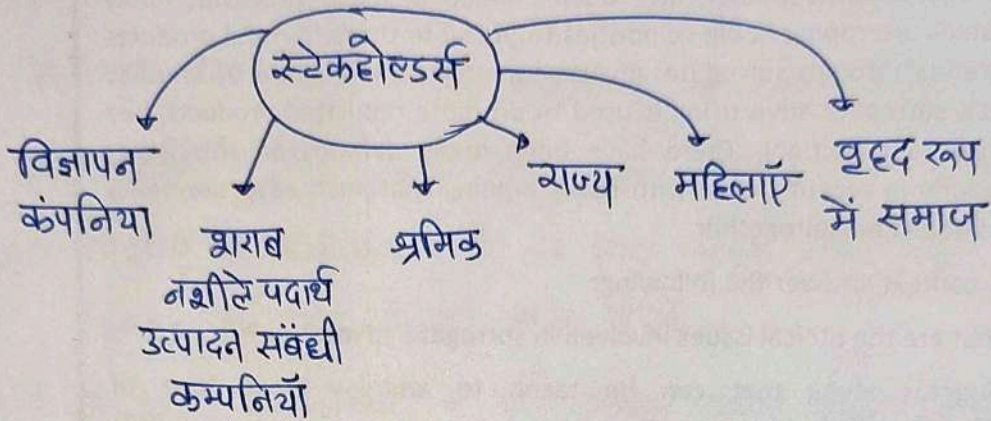 स्टेकहोल्डर्स
विज्ञापन
कंपनिया
शराब
नशीले पदार्थ
उत्पादन संबंधी
कम्पनियाँ
श्रमिक
राज्य
महिलाएँ
वृहद रूप
में समाज